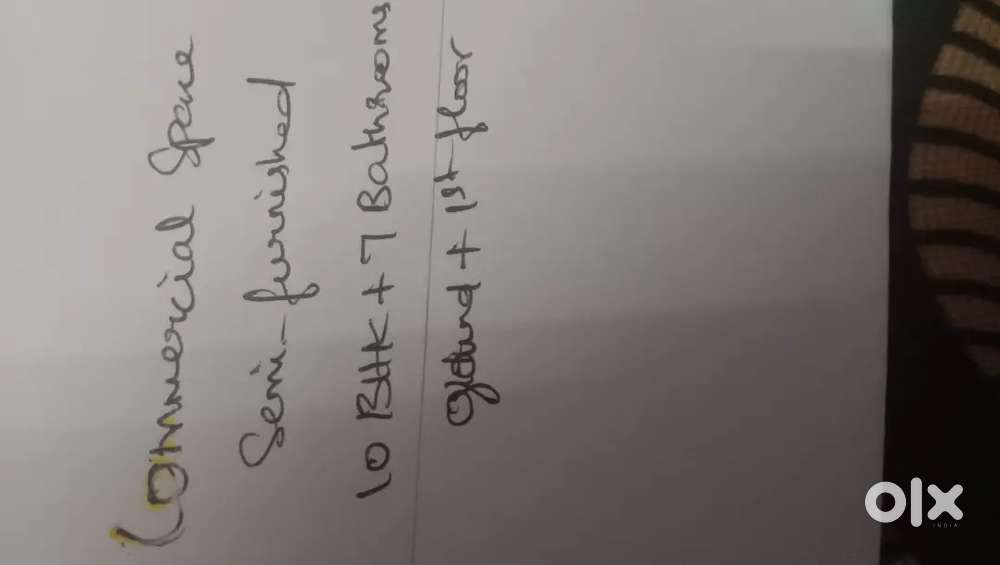 Commercial Space
Semi-furnished
10 BHK + 7 Bathrooms
Ground + 1st floor
olx
INDIA